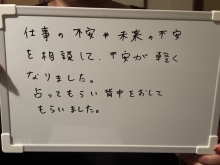 仕事の不安や未来の不安
を相談して、不安が軽く
なりました。
占ってもらい背中をおして
もらいました。